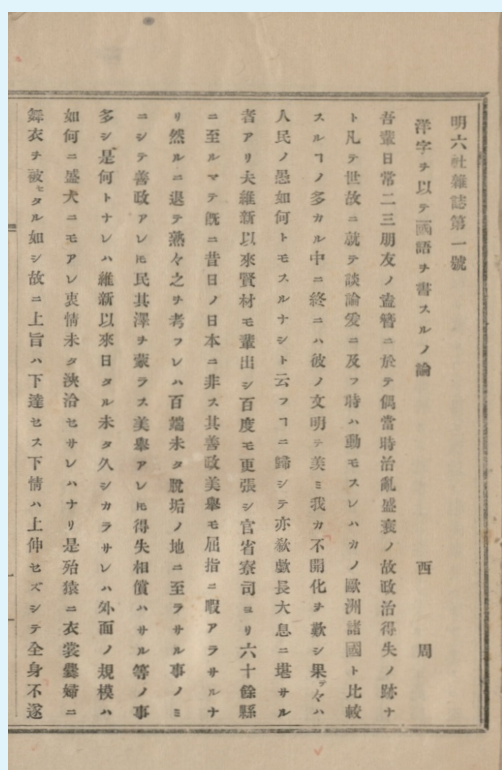 明六社雜誌第一號
洋字ヲ以テ國語ヲ書スルノ論 西周
吾輩日常二三朋友ノ盍簪ニ於テ偶當時治亂盛衰ノ故政治得失ノ跡ナ
ト凡テ世故ニ就テ談論爰ニ及フ時ハ動モスレハカノ歐洲諸國ト比較
スルヿノ多カル中ニ終ニハ彼ノ文明ヲ羨ミ我カ不開化ヲ歎シ果々ハ
人民ノ愚如何トモスルナシト云フヿニ歸シテ亦欷歔長大息ニ堪サル
者アリ夫維新以來賢材モ輩出シ百度モ更張シ官省寮司ヨリ六十餘縣
ニ至ルマテ既ニ昔日ノ日本ニ非ス其善政美擧モ屈指ニ暇アラサルナ
リ然ルニ退テ熟々之ヲ考フレハ百端未タ脫垢ノ地ニ至ラサル事ノミ
ニシテ善政アレ𪜈民其澤ヲ蒙ラス美擧アレ𪜈得失相償ハサル等ノ事
多シ是何トナレハ維新以來日タル未タ久シカラサレハ外面ノ規模ハ
如何ニ盛大ニモアレ衷情未タ浹洽セサレハナリ是殆猿ニ衣裳爨婦ニ
舞衣ヲ被セタル如シ故ニ上旨ハ下達セス下情ハ上伸セズシテ全身不遂